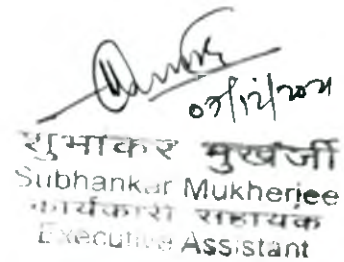 07/12/2021
सुभाकर मुखर्जी
Subhankar Mukherjee
कार्यकारी सहायक
Executive Assistant